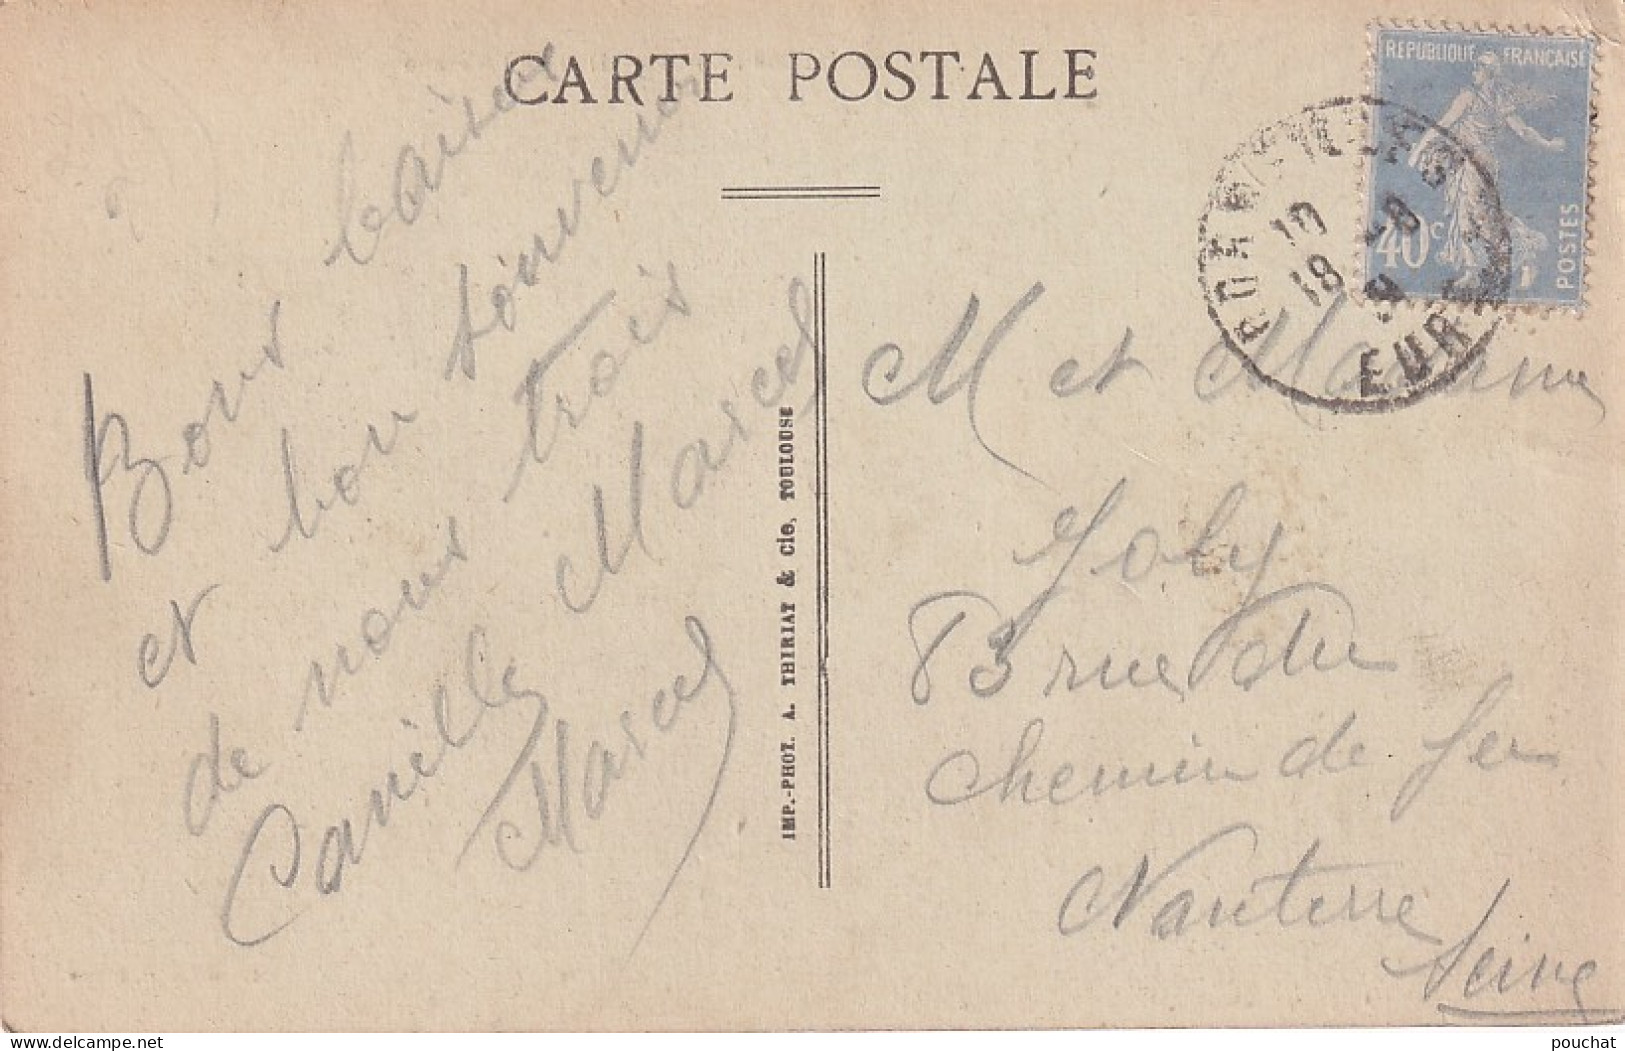 CARTE POSTALE
REPUBLIQUE FRANÇAISE
40c
POSTES
EURE
10
18
Bons baisers
et bon souvenir
de nous trois
Camille Marcel
Marcel
IMP.-PHOT. A. THIRIAT & Cie, TOULOUSE
M et Madame
Joly
83 rue du
chemin de fer
Nanterre
Seine
delcampe.net
pouchat